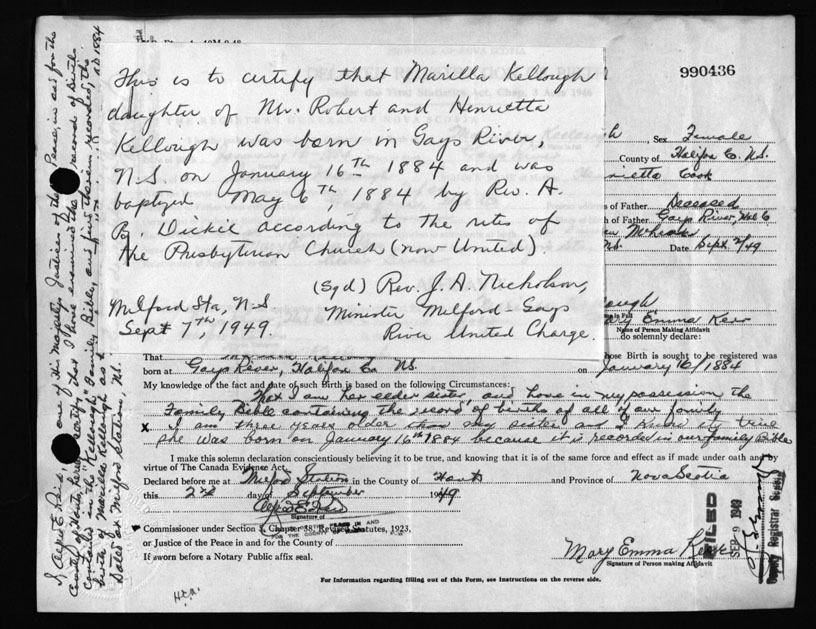 This is to certify that Marilla Kellough
daughter of Mr. Robert and Henrietta
Kellough was born in Gays River,
N.S. on January 16th 1884 and was
baptized May 6th, 1884 by Rev. A.
B. Dickie according to the rites of
the Presbyterian Church (now United).
(Sgd) Rev. J. A. Nicholson,
Minister Milford-Gays
River United Charge.
Milford Sta, N.S
Sept 7th, 1949.
990436
Sex Female
County of Halifax Co. N.S.
Cook
of Father Deceased
of Father Gays River,
Date Sept 2/49
Mary Emma Kerr
Name of Person Making Affidavit
do solemnly declare:
That
whose Birth is sought to be registered was
born at Gays River, Halifax Co N.S. on January 16/1884
My knowledge of the fact and date of such Birth is based on the following Circumstances:
That I am her elder sister, and have in my possession the
Family Bible containing the record of births of all of our family
x I am three years older than my sister and I know
she was born on January 16th 1884 because it is recorded in our family Bible
I make this solemn declaration conscientiously believing it to be true, and knowing that it is of the same force and effect as if made under oath and by
virtue of The Canada Evidence Act.
Declared before me at Milford Station in the County of Hants and Province of Nova Scotia
this 2nd day of September 1949
Signature of
Commissioner under Section 3, Chapter 38, Revised Statutes, 1923,
or Justice of the Peace in and for the County of
If sworn before a Notary Public affix seal.
Mary Emma Kerr
Signature of Person making Affidavit
For Information regarding filling out of this Form, see Instructions on the reverse side.
FILED
SEP 9 1949
Deputy Registrar General
I, Alfred E. Reid, one of his majestys Justices of the Peace, in and for the
County of Hants, hereby certify, that I have examined the record of Births
Contained in the "Kellough" Family Bible, and find therein recorded, the
birth of Marilla Kellough as 1884
Dated at Milford Station, N.S.